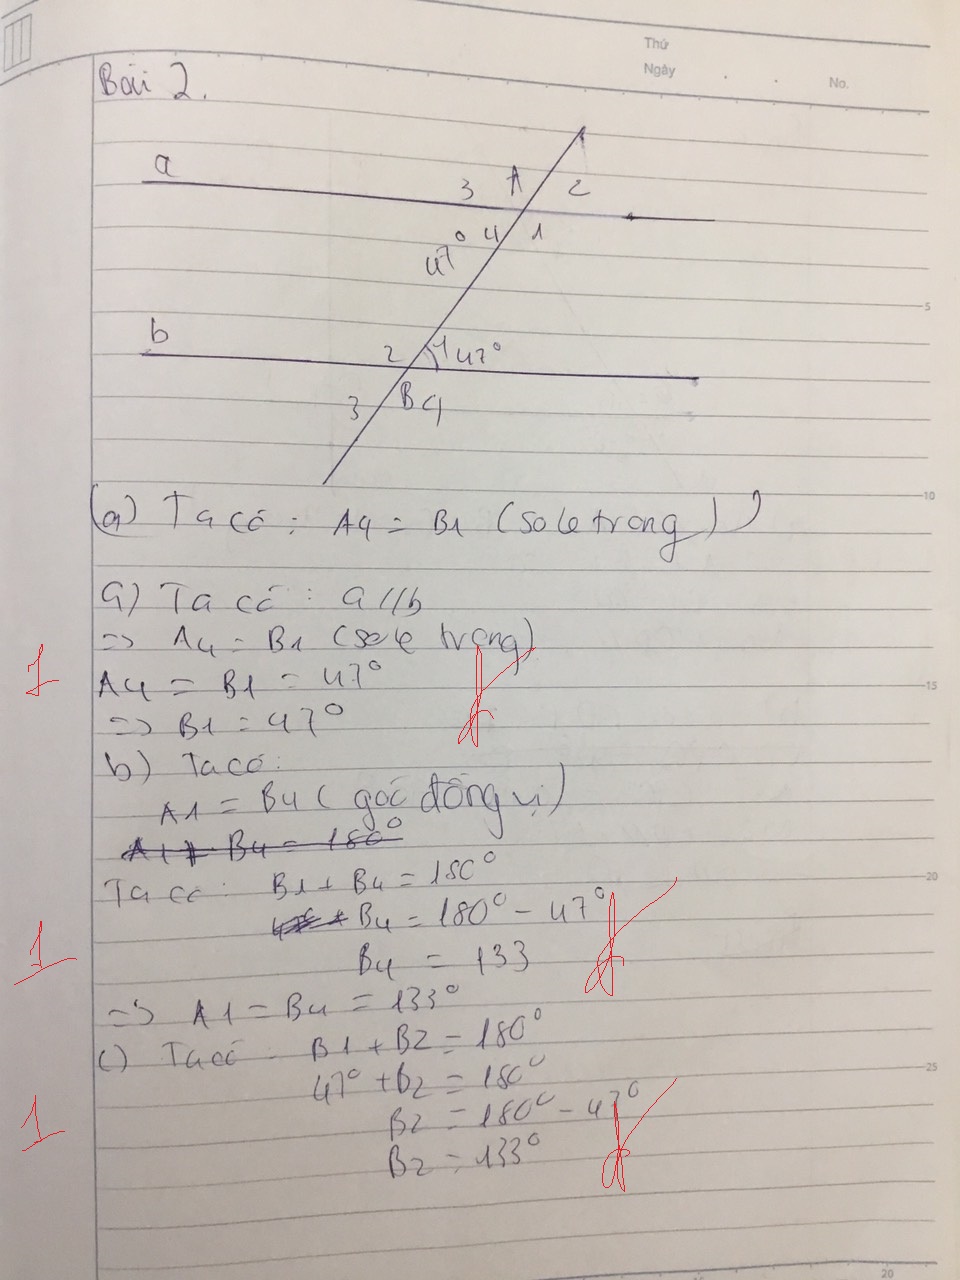 Thứ
Ngày . . No.
Bài 2.
a
3 A 2
47° 4 1
5
b
2 1 47°
3 B 4
10
(a) Ta có : A4 = B1 (so le trong)
a) Ta có : a // b
=> A4 = B1 (so le trong)
1 A4 = B1 = 47°
15
=> B1 = 47°
b) Ta có:
A1 = B4 ( góc đồng vị )
B4 = 180°
Ta có: B1 + B4 = 180°
20
B4 = 180° - 47°
1 B4 = 133
=> A1 = B4 = 133°
c) Ta có : B1 + B2 = 180°
25
47° + B2 = 180°
1 B2 = 180° - 47°
B2 = 133°
20